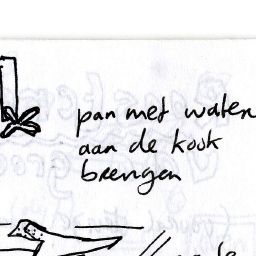 pan met water
aan de kook
brengen